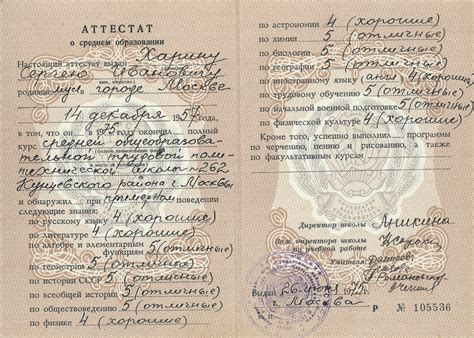 АТТЕСТАТ
о среднем образовании
Настоящий аттестат выдан Харину
Сергею Ивановичу
родившемуся в городе Москве
14 декабря 1957
в том, что он в 1975 году окончил полный
курс средней общеобразова-
тельной трудовой поли-
технической школы № 262
Кунцевского района г. Москвы
и обнаружил при примерном поведении
следующие знания:
по русскому языку 4 (хорошие)
по литературе 4 (хорошие)
по алгебре и элементарным
функциям 5 (отличные)
по геометрии 5 (отличные)
по истории СССР 5 (отличные)
по всеобщей истории 5 (отличные)
по обществоведению 5 (отличные)
по физике 4 (хорошие)
по астрономии 4 (хорошие)
по химии 5 (отличные)
по биологии 5 (отличные)
по географии 5 (отличные)
по иностранному языку (англ) 4 (хорошие)
по трудовому обучению 5 (отличные)
по начальной военной подготовке 5 (отличные)
по физической культуре 4 (хорошие)
Кроме того, успешно выполнил программы
по черчению, пению и рисованию, а также
по факультативным курсам
Директор школы Аникина
Зам. директора школы
по учебной работе
Учителя:
Выдан 26 июня 1975 г.
г. Москва
Р № 105536